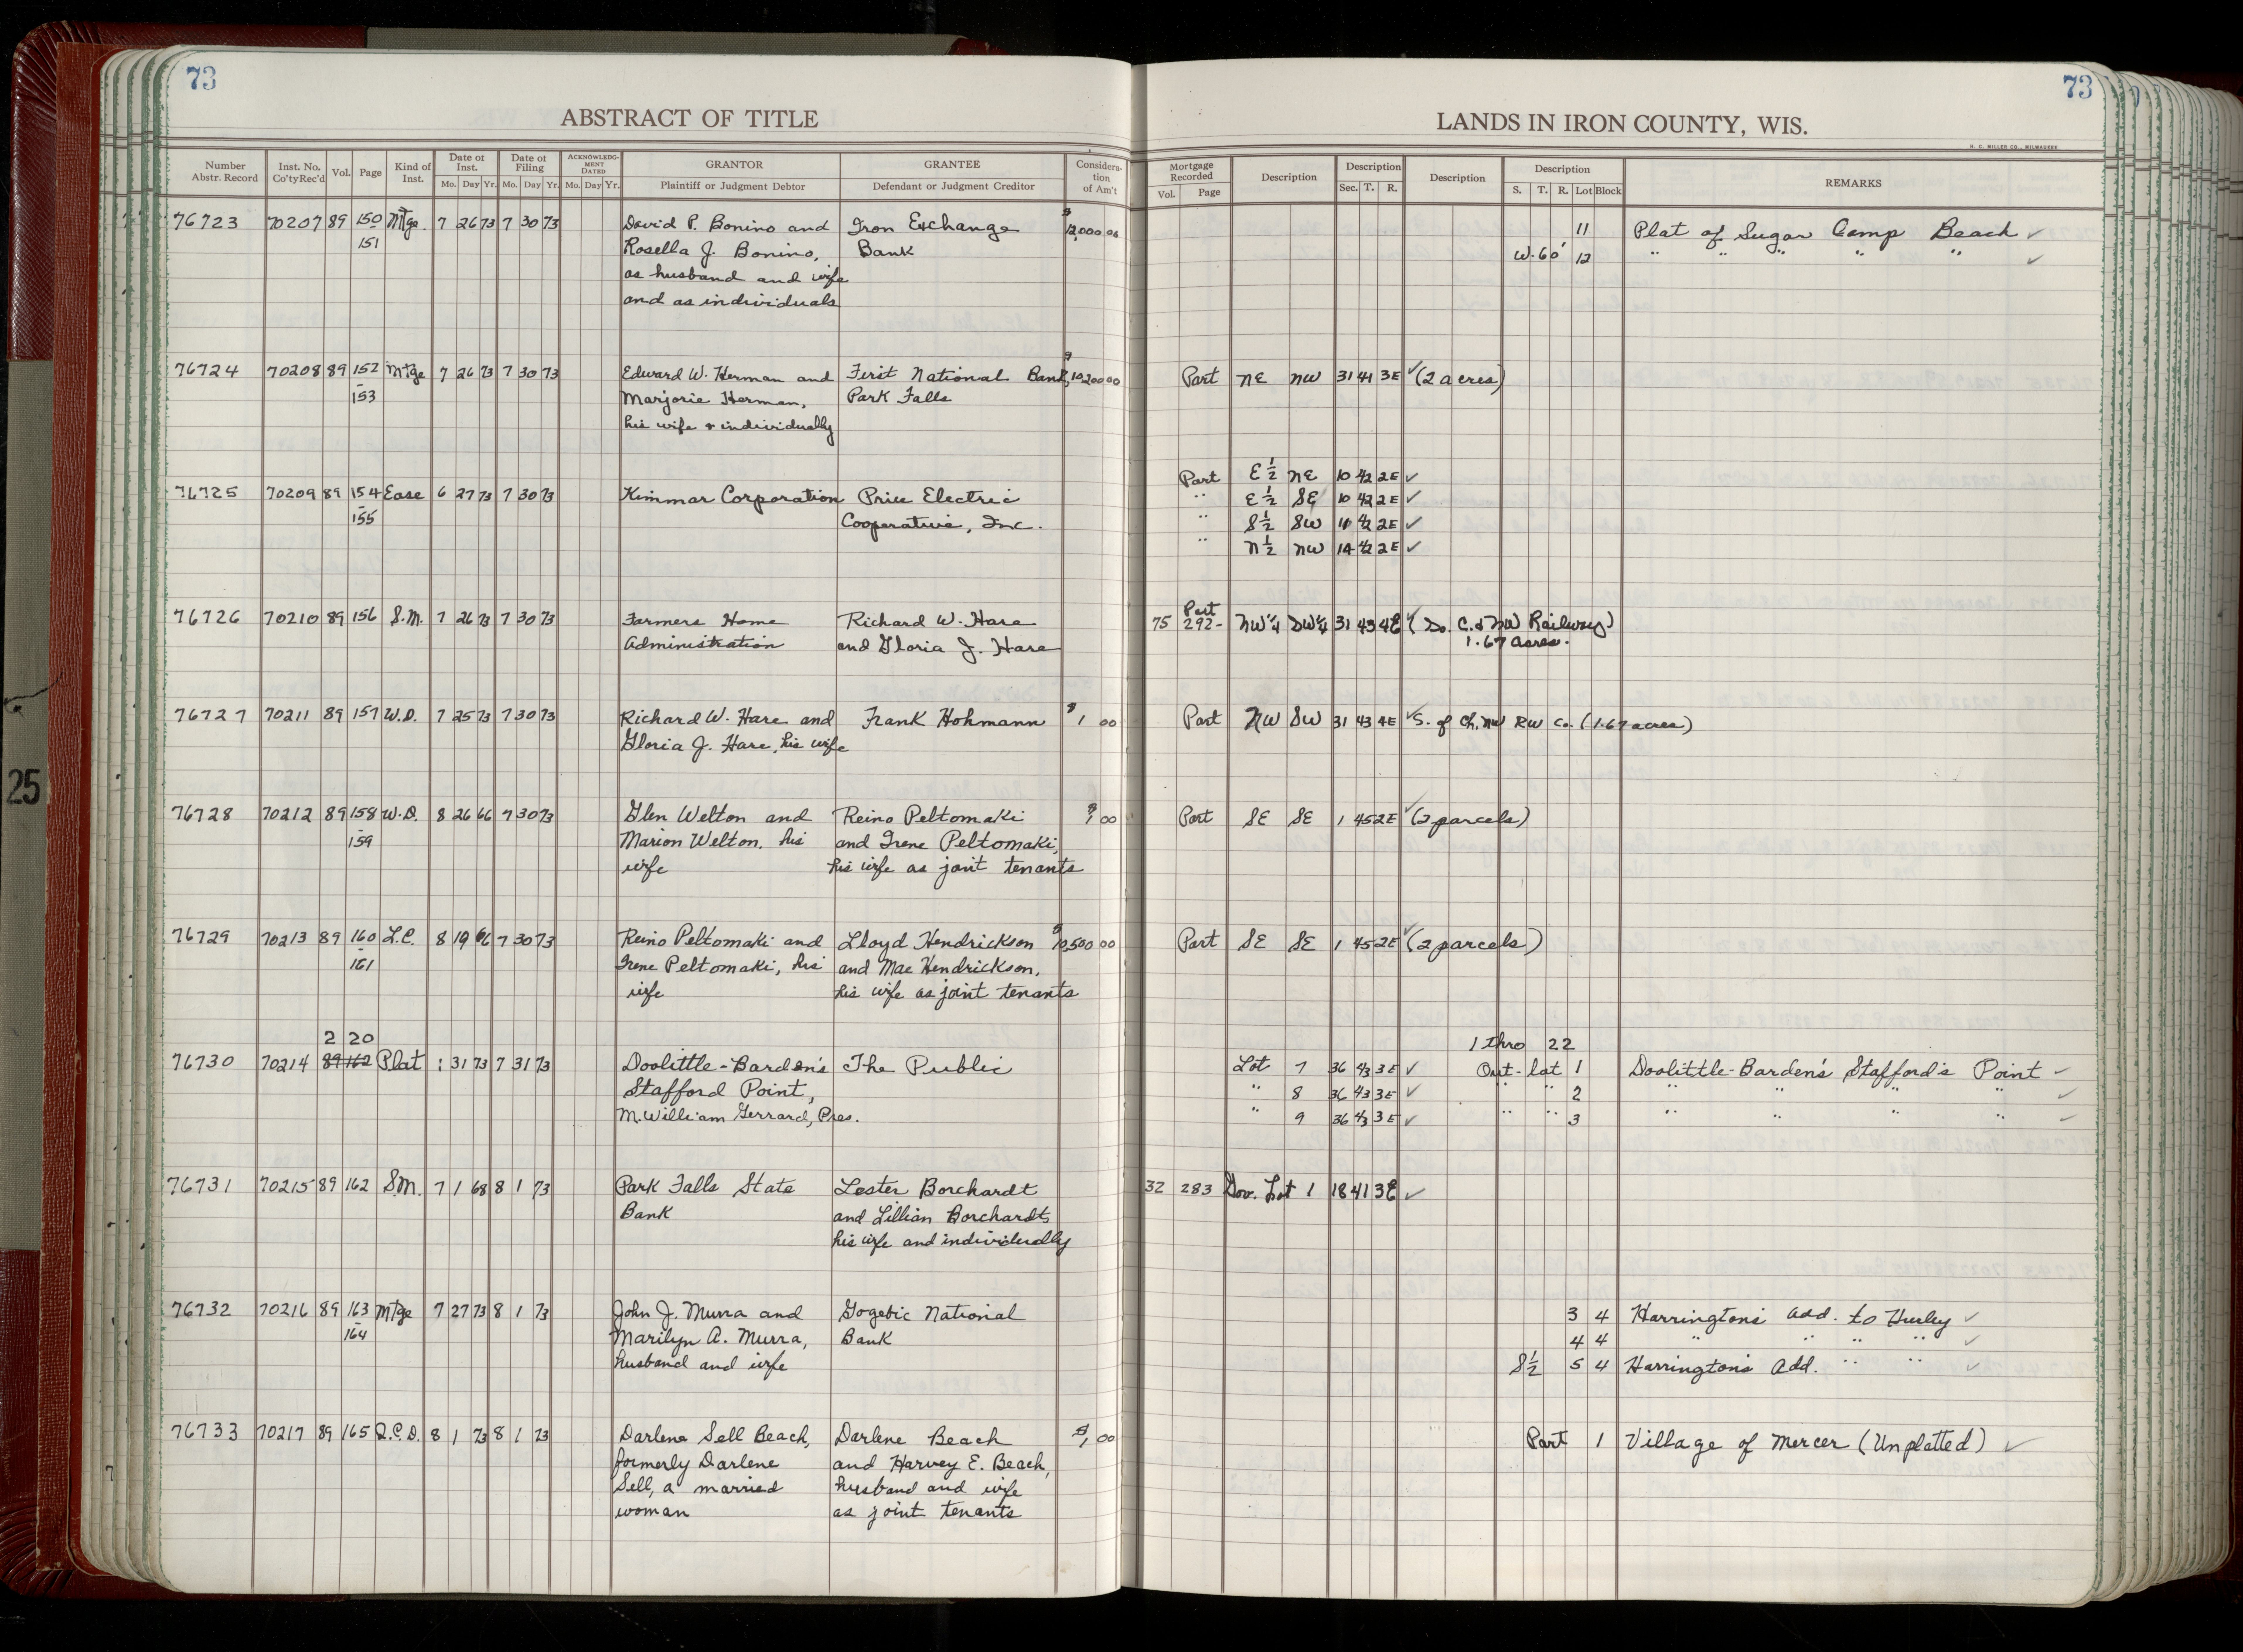 73
73
ABSTRACT OF TITLE
LANDS IN IRON COUNTY, WIS.
H. C. MILLER CO., MILWAUKEE
Number Abstr. Record Inst. No. Co'ty Rec'd Vol. Page Kind of Inst. Date of Inst. Mo. Day Yr. Date of Filing Mo. Day Yr. ACKNOWLEDGMENT DATED Mo. Day Yr. GRANTOR Plaintiff or Judgment Debtor GRANTEE Defendant or Judgment Creditor Consideration of Am't
Mortgage Recorded Vol. Page Description Description Sec. T. R. Description Description S. T. R. Lot Block REMARKS
76723 70207 89 150 Mtge. 7 26 73 7 30 73 David P. Bonino and Iron Exchange $12,000 00 11 Plat of Sugar Camp Beach ✓
151 Rosella J. Bonino, Bank W. 60' 12 " " " " " ✓
as husband and wife
and as individuals
76724 70208 89 152 Mtge 7 26 73 7 30 73 Edward W. Herman and First National Bank, $10,200 00 Part NE NW 31 41 3E ✓ (2 acres)
153 Marjorie Herman, Park Falls
his wife & individually
Part E½ NE 10 42 2E ✓
76725 70209 89 154 Ease 6 27 73 7 30 73 Kimmar Corporation Price Electric " E½ SE 10 42 2E ✓
155 Cooperative, Inc. " S½ SW 11 42 2E ✓
" N½ NW 14 42 2E ✓
76726 70210 89 156 S.M. 7 26 73 7 30 73 Farmers Home Richard W. Hare 75 Part 292- NW¼ SW¼ 31 43 4E ✓ (So. C. & NW Railway)
Administration and Gloria J. Hare 1.67 acres.
76727 70211 89 157 W.D. 7 25 73 7 30 73 Richard W. Hare and Frank Hohmann $1 00 Part NW SW 31 43 4E ✓ S. of Ch. NW RW Co. (1.67 acres)
Gloria J. Hare, his wife
76728 70212 89 158 W.D. 8 26 66 7 30 73 Glen Welton and Reino Peltomaki $1 00 Part SE SE 1 45 2E ✓ (2 parcels)
159 Marion Welton, his and Irene Peltomaki,
wife his wife as joint tenants
76729 70213 89 160 L.C. 8 19 66 7 30 73 Reino Peltomaki and Lloyd Hendrickson $10,500 00 Part SE SE 1 45 2E ✓ (2 parcels)
161 Irene Peltomaki, his and Mae Hendrickson,
wife his wife as joint tenants
2 20 1 thro 22
76730 70214 89 162 Plat 1 31 73 7 31 73 Doolittle-Barden's The Public Lot 7 36 43 3E ✓ Out-lot 1 Doolittle-Barden's Stafford's Point ✓
Stafford Point, " 8 36 43 3E ✓ " " 2 " " " " ✓
M. William Gerrard, Pres. " 9 36 43 3E ✓ " " 3 " " " " ✓
76731 70215 89 162 S.M. 7 1 68 8 1 73 Park Falls State Lester Borchardt 32 283 Gov. Lot 1 18 41 3E ✓
Bank and Lillian Borchardt,
his wife and individually
76732 70216 89 163 Mtge 7 27 73 8 1 73 John J. Murra and Gogebic National 3 4 Harrington's Add. to Hurley ✓
164 Marilyn A. Murra, Bank 4 4 " " " " ✓
husband and wife S½ 5 4 Harrington's Add. " " ✓
76733 70217 89 165 Q.C.D. 8 1 73 8 1 73 Darlene Sell Beach, Darlene Beach $1 00 Part 1 Village of Mercer (Unplatted) ✓
formerly Darlene and Harvey E. Beach,
Sell, a married husband and wife
woman as joint tenants
25